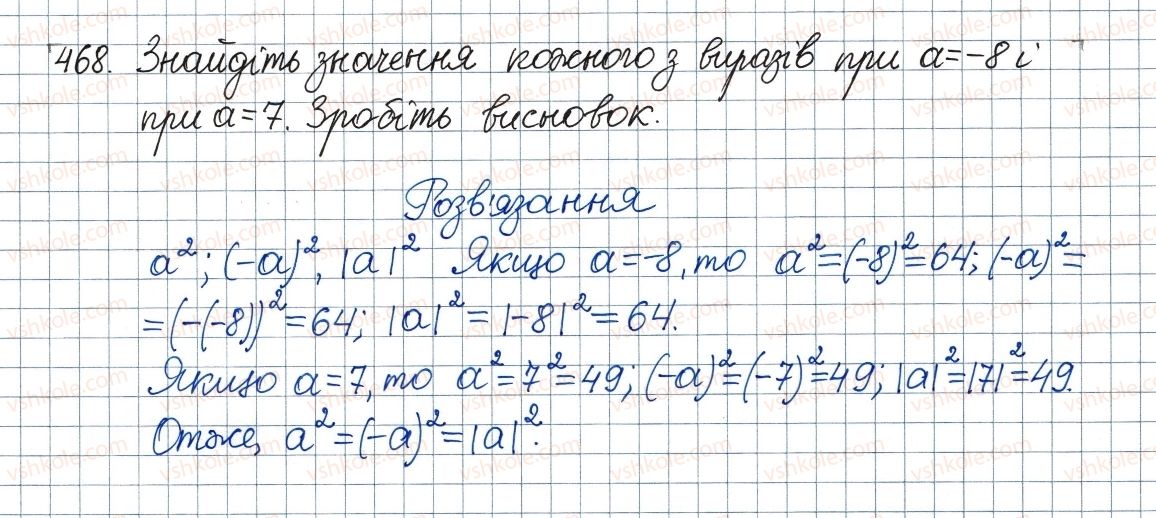 468. Знайдіть значення кожного з виразів при a=-8 і
при a=7. Зробіть висновок.
Розв'язання
a²; (-a)², |a|² Якщо a=-8, то a²=(-8)²=64; (-a)²=
=(-(-8))²=64; |a|²=|-8|²=64.
Якщо a=7, то a²=7²=49; (-a)²=(-7)²=49; |a|²=|7|²=49.
Отже, a²=(-a)²=|a|².